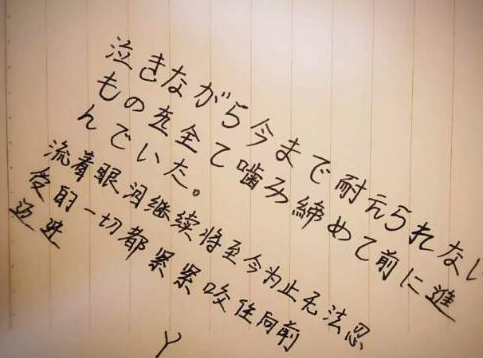 泣きながら今まで耐えられない
ものを全て噛み締めて前に進
んでいた。
流着眼泪继续将至今为止无法忍
受的一切都紧紧咬住向前
迈进
Y